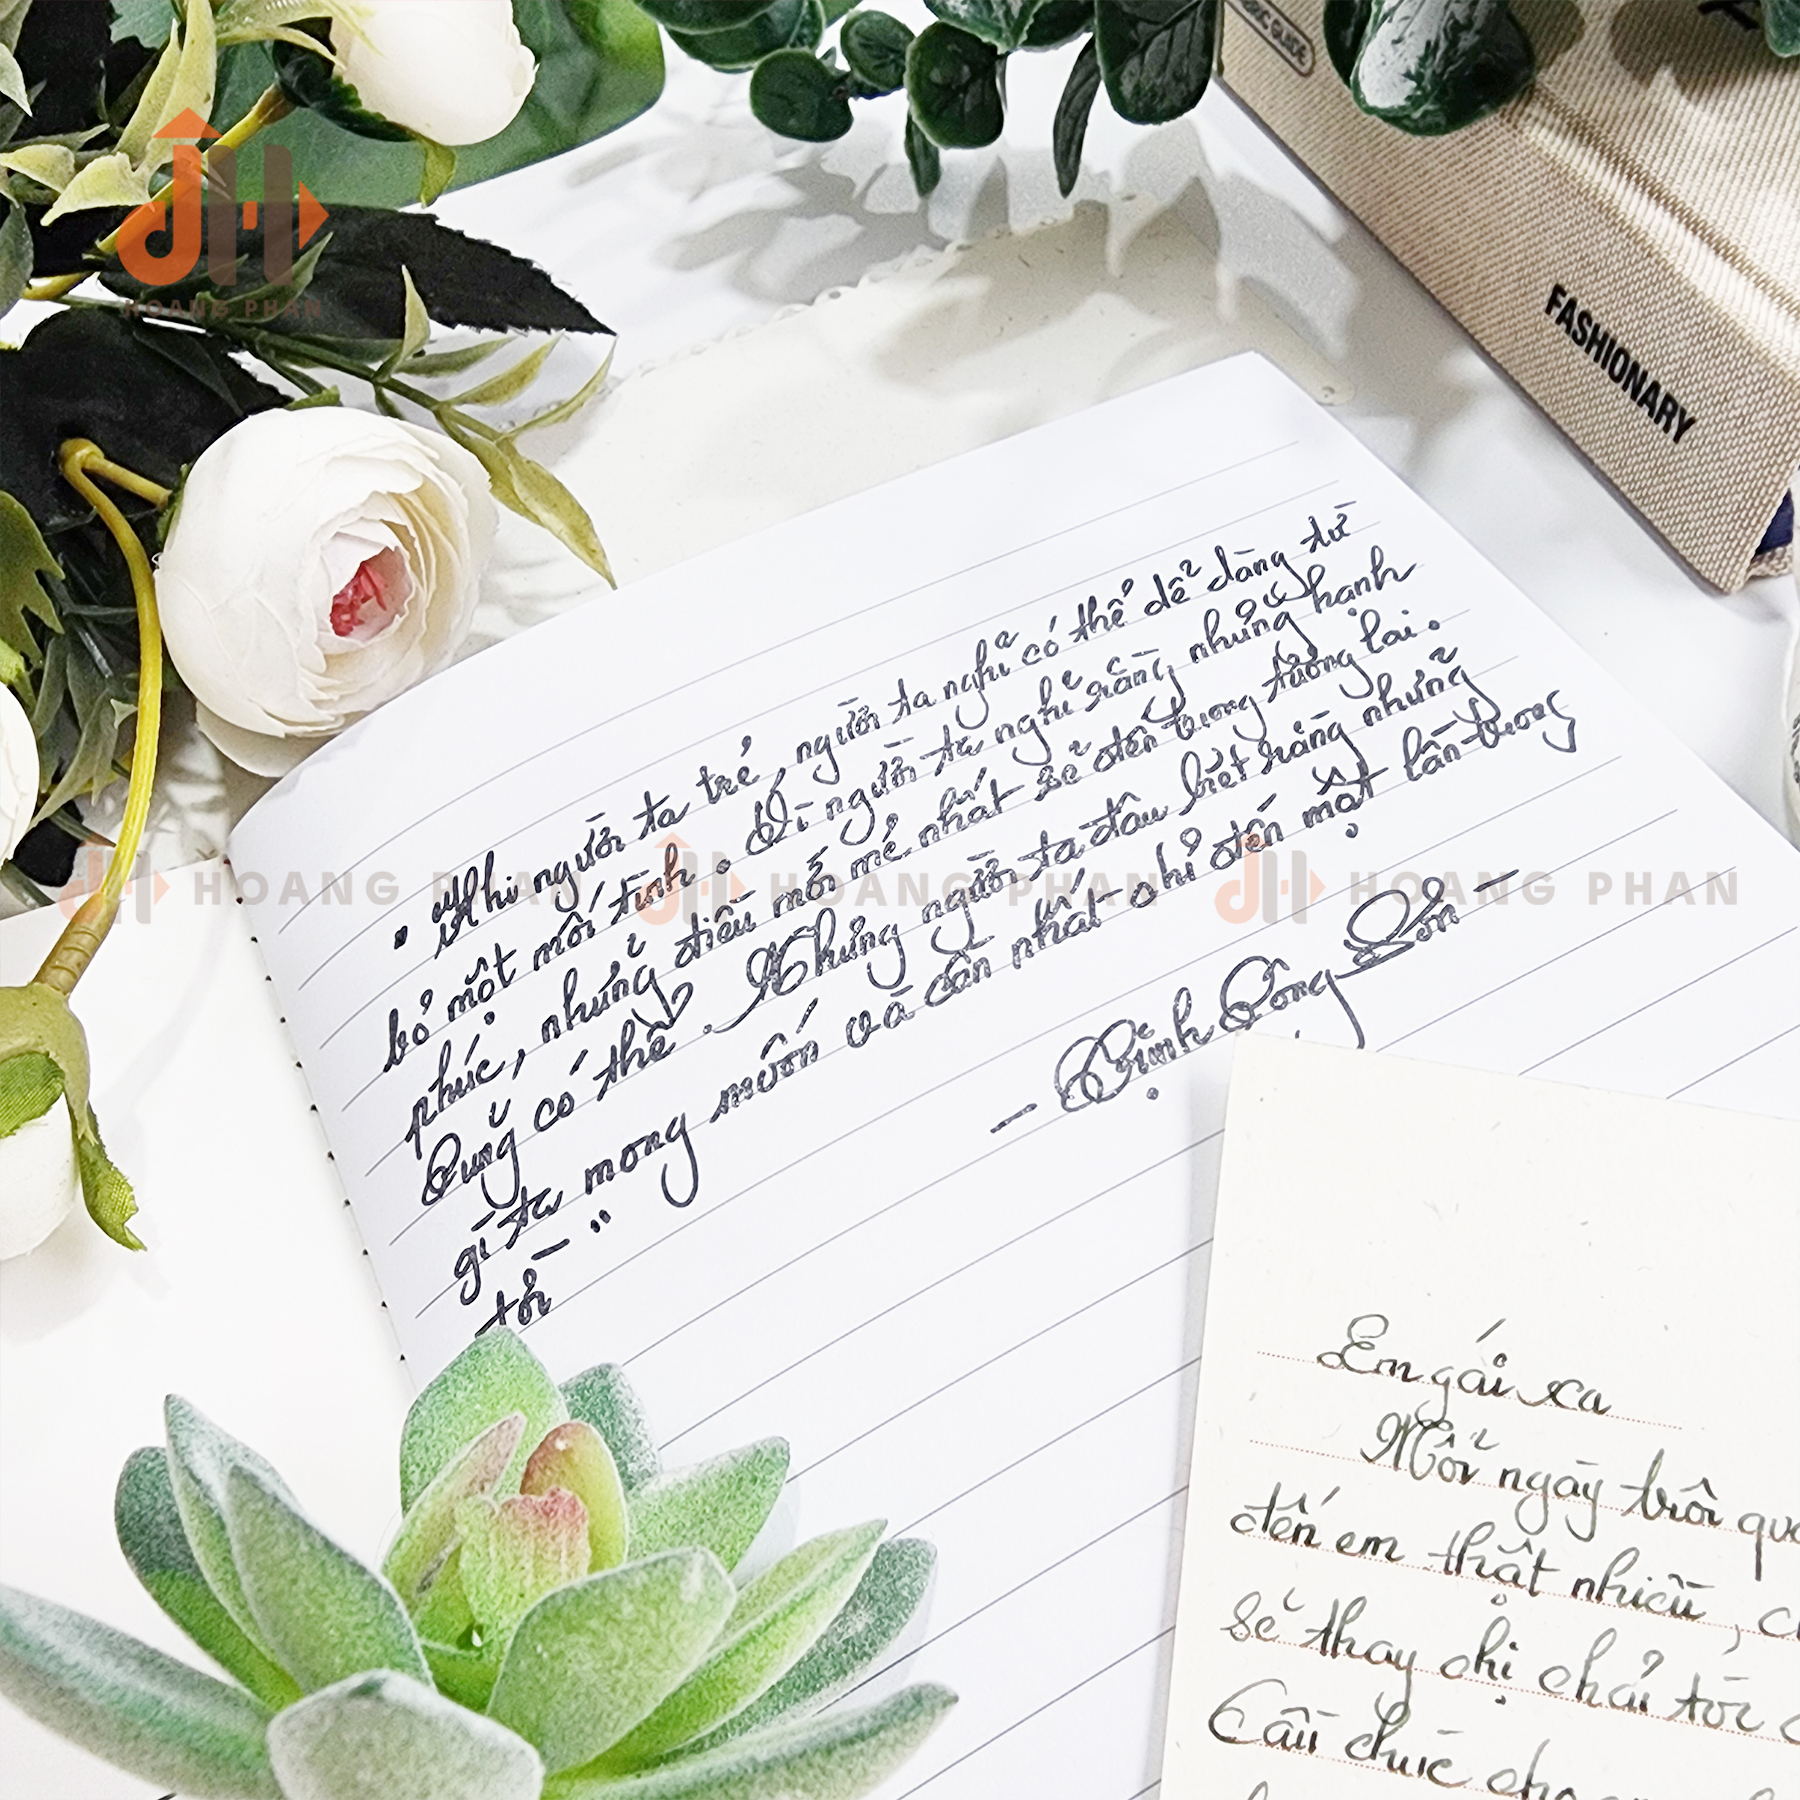 HOANG PHAN
FASHIONARY
" Khi người ta trẻ, người ta nghĩ có thể dễ dàng từ
bỏ một mối tình. Vì người ta nghĩ rằng những hạnh
phúc, những điều mới mẻ nhất sẽ đến trong tương lai.
Cũng có thể. Nhưng người ta đâu biết rằng những
gì ta mong muốn và cần nhất chỉ đến một lần trong
đời "
HOANG PHAN HOANG PHAN HOANG PHAN
- Trịnh Công Sơn -
Em gái xa
Mỗi ngày trôi
đến em thật nhiều,
sẽ thay chị chải tóc
Cầu chúc cho